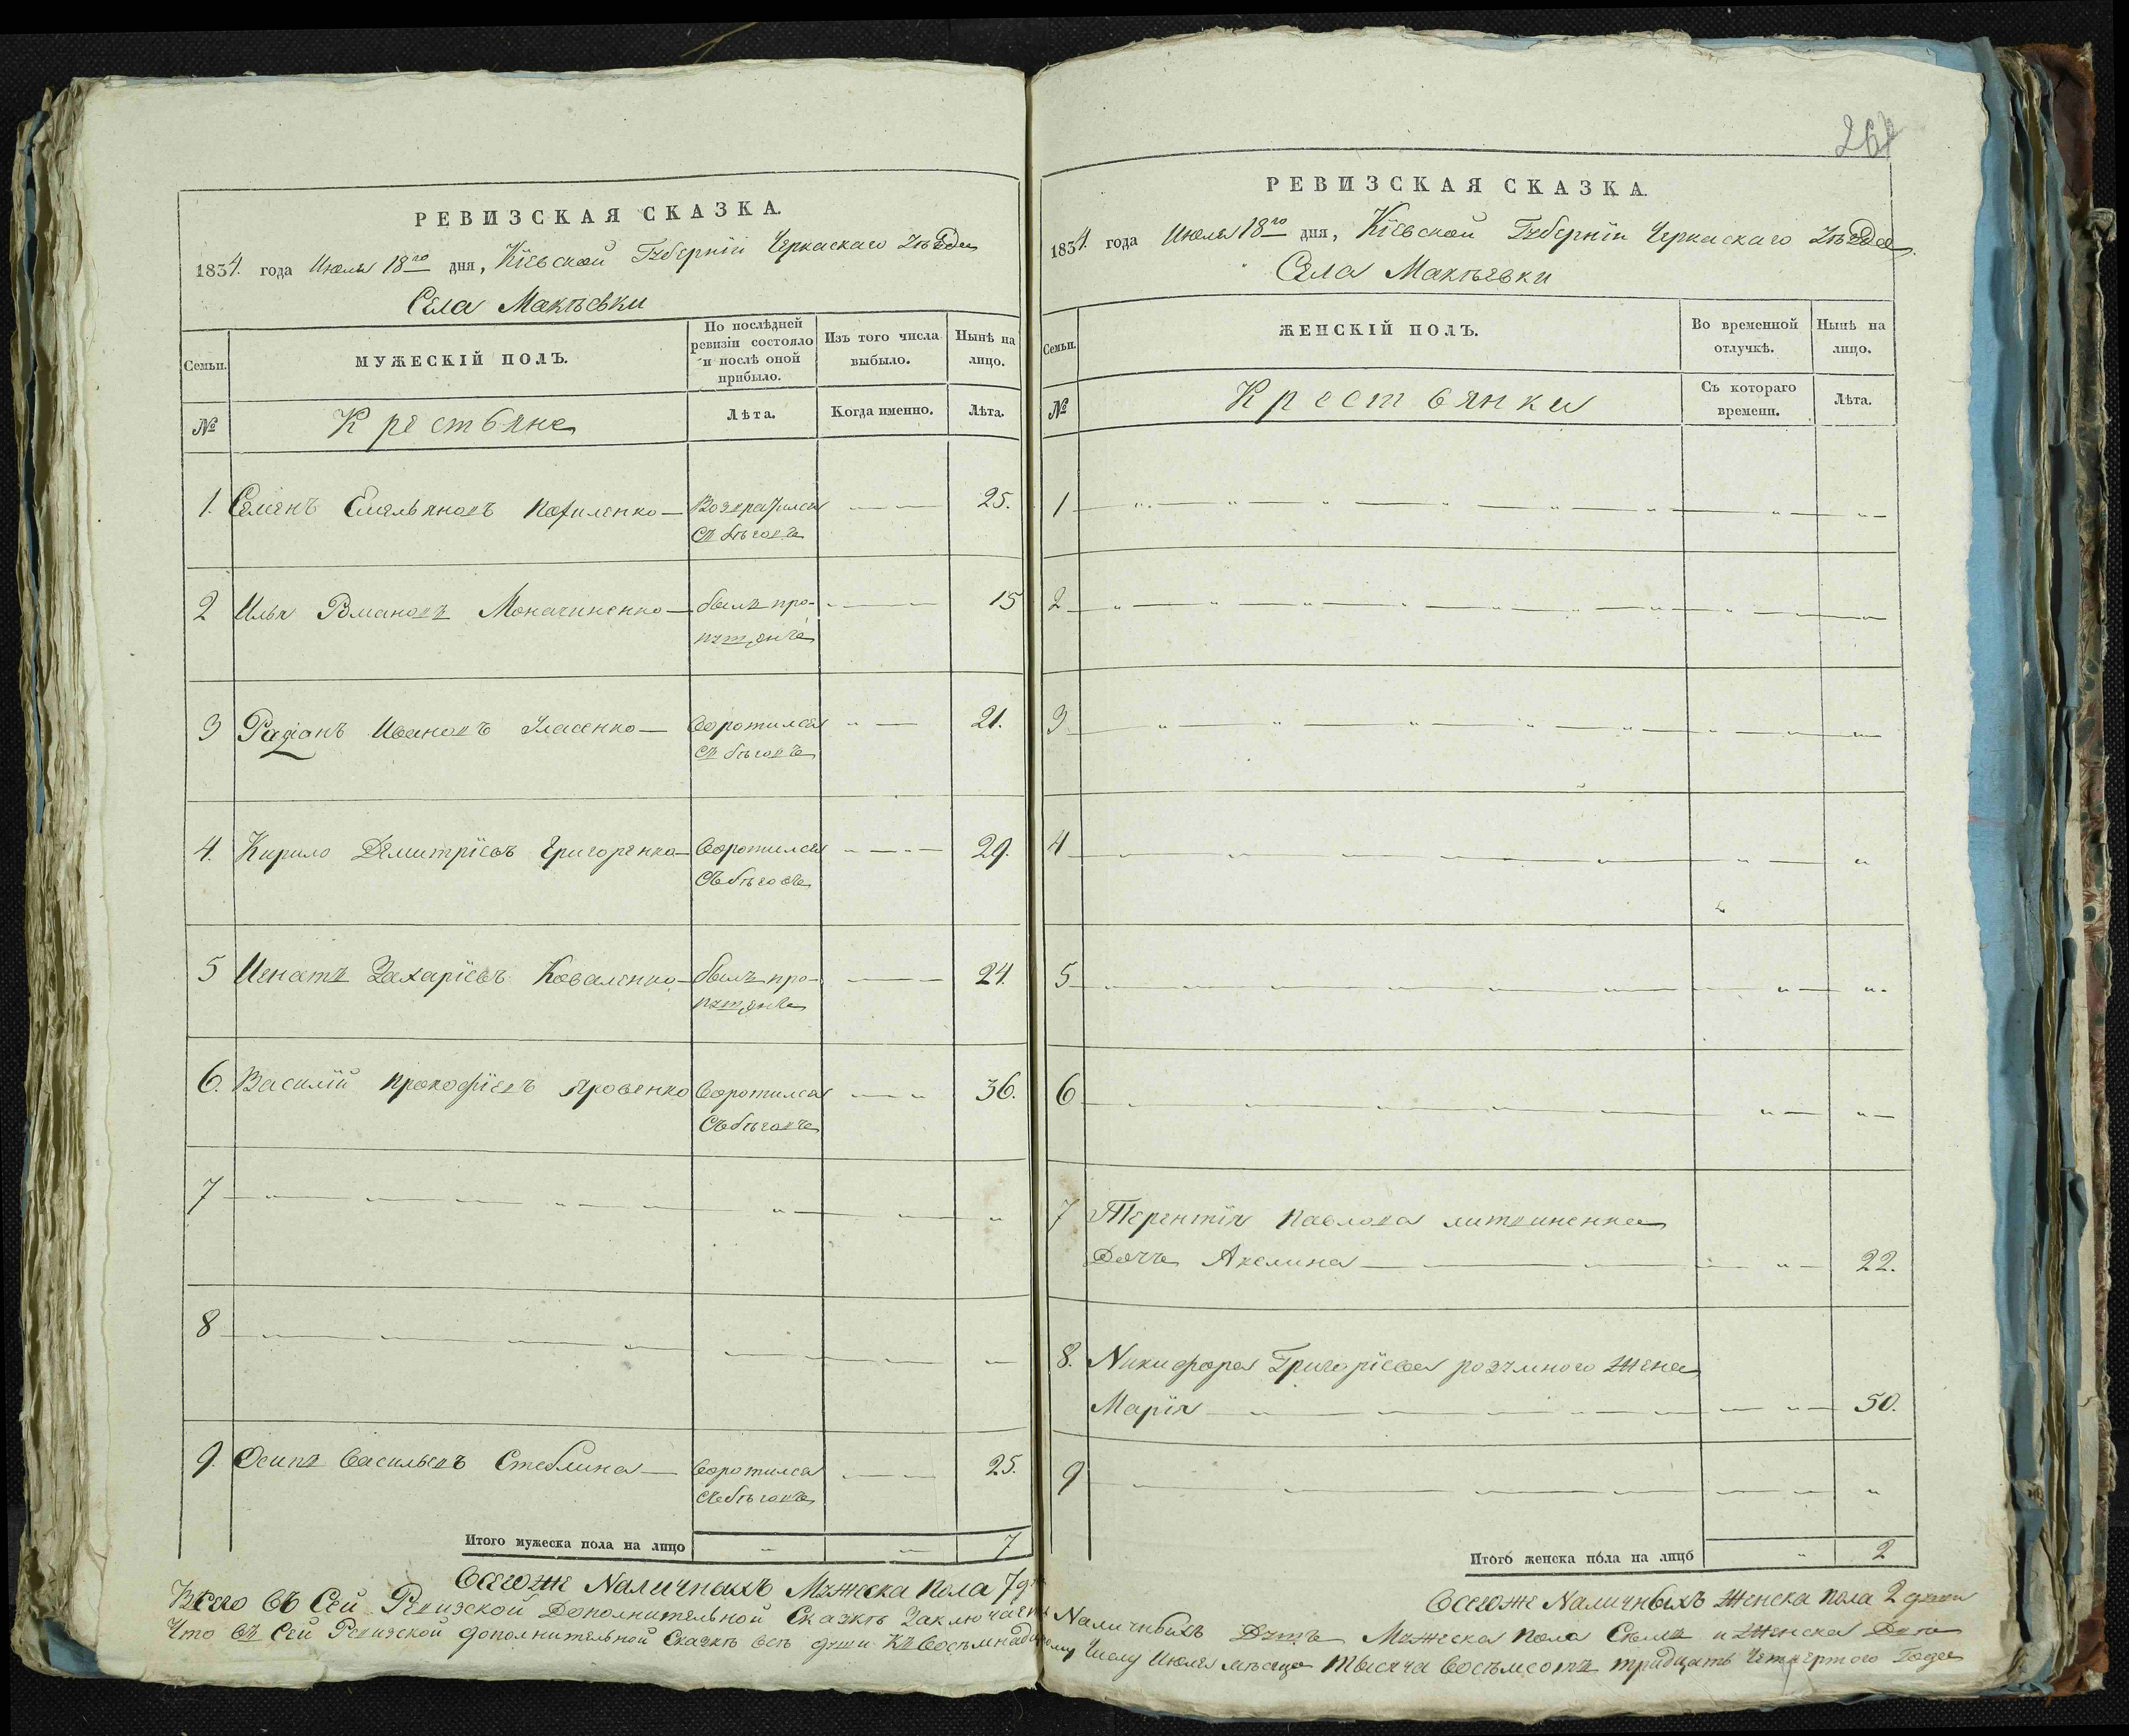 РЕВИЗСКАЯ СКАЗКА.
1834. года Июля 18го дня, Кіевской Губерніи Черкаскаго Уѣзда
Села Макѣевки
Семьи.
МУЖЕСКІЙ ПОЛЪ.
По послѣдней
ревизіи состояло
и послѣ оной
прибыло.
Изъ того числа
выбыло.
Нынѣ на
лицо.
№
Крестьяне
Лѣта.
Когда именно.
Лѣта.
1. Семенъ Емельяновъ — Возвратился 25.
съ бѣговъ
2 Илья Романовъ — былъ про- 15
пущенъ
3 Радіонъ Ивановъ Уласенко — воротился 21.
съ бѣговъ
4. Кирило Демитріевъ Григоренко — воротился 29.
съ бѣговъ
5 Игнатъ Захаріевъ Коваленко — былъ про- 24.
пущенъ
6. Василій Прокофіевъ Яровенко воротился 36.
съ бѣговъ
7
8
9. Осипъ Васильевъ Стеблина — воротился 25.
съ бѣговъ
Итого мужеска пола на лицо 7
Всегоже Наличныхъ Мужеска пола 7
Всего въ Сей Ревизской Дополнительной Сказкѣ
Что въ Сей Ревизской дополнительной Сказкѣ всѣ души
РЕВИЗСКАЯ СКАЗКА.
1834. года Июля 18го дня, Кіевской Губерніи Черкаскаго Уѣзда
Села Макѣевки
Семьи.
ЖЕНСКІЙ ПОЛЪ.
Во временной
отлучкѣ.
Нынѣ на
лицо.
№
Крестьянки
Съ котораго
времени.
Лѣта.
1
2
3
4
5
6
7 Терентія Павлова Литвиненка
Дочь Акелина 22.
8. Никифора Григоріева розумного жена
Марія 50.
9
Итого женска пола на лицо 2
Всегоже Наличныхъ Женска пола 2 души
Наличныхъ Душъ Мужеска пола Семь и Женска
Числу Июля мѣсяца тысяча восемьсотъ тридцать четвертого Года